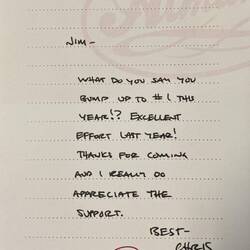 JIM-
WHAT DO YOU SAY YOU
BUMP UP TO #1 THIS
YEAR!? EXCELLENT
EFFORT LAST YEAR!
THANKS FOR COMING
AND I REALLY DO
APPRECIATE THE
SUPPORT.
BEST-
CHRIS